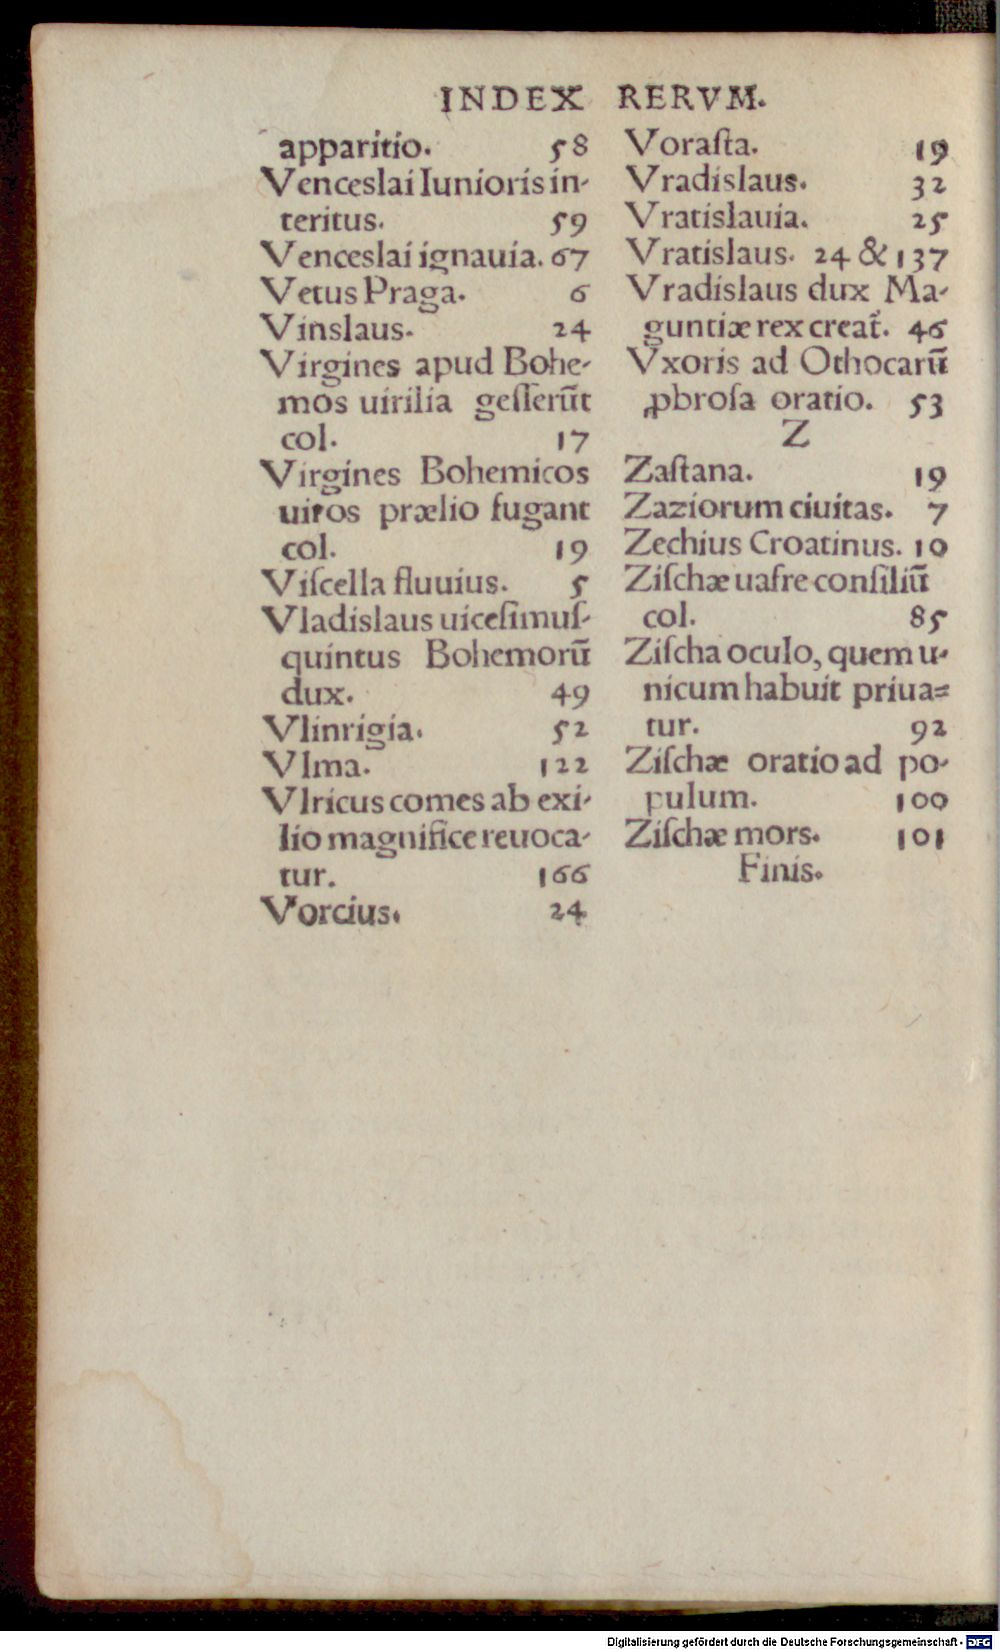 INDEX RERVM.
apparitio. 58
Venceslai Iunioris in-
teritus. 59
Venceslai ignauia. 67
Vetus Praga. 6
Vinslaus. 24
Virgines apud Bohe-
mos uirilia geſſerūt
col. 17
Virgines Bohemicos
uiros prælio fugant
col. 19
Viſcella fluuius. 5
Vladislaus uiceſimuſ-
quintus Bohemorū
dux. 49
Vlinrigia. 52
Vlma. 122
Vlricus comes ab exi-
lio magnifice reuoca-
tur. 166
Vorcius. 24
Voraſta. 19
Vradislaus. 32
Vratislauia. 25
Vratislaus. 24 & 137
Vradislaus dux Ma-
guntiæ rex creat̃. 46
Vxoris ad Othocarū
ꝓbroſa oratio. 53
Z
Zaſtana. 19
Zaziorum ciuitas. 7
Zechius Croatinus. 10
Ziſchæ uafre conſiliū
col. 85
Ziſcha oculo, quem u-
nicum habuit priua=
tur. 92
Ziſchæ oratio ad po-
pulum. 100
Ziſchæ mors. 101
Finis.
Digitalisierung gefördert durch die Deutsche Forschungsgemeinschaft - DFG